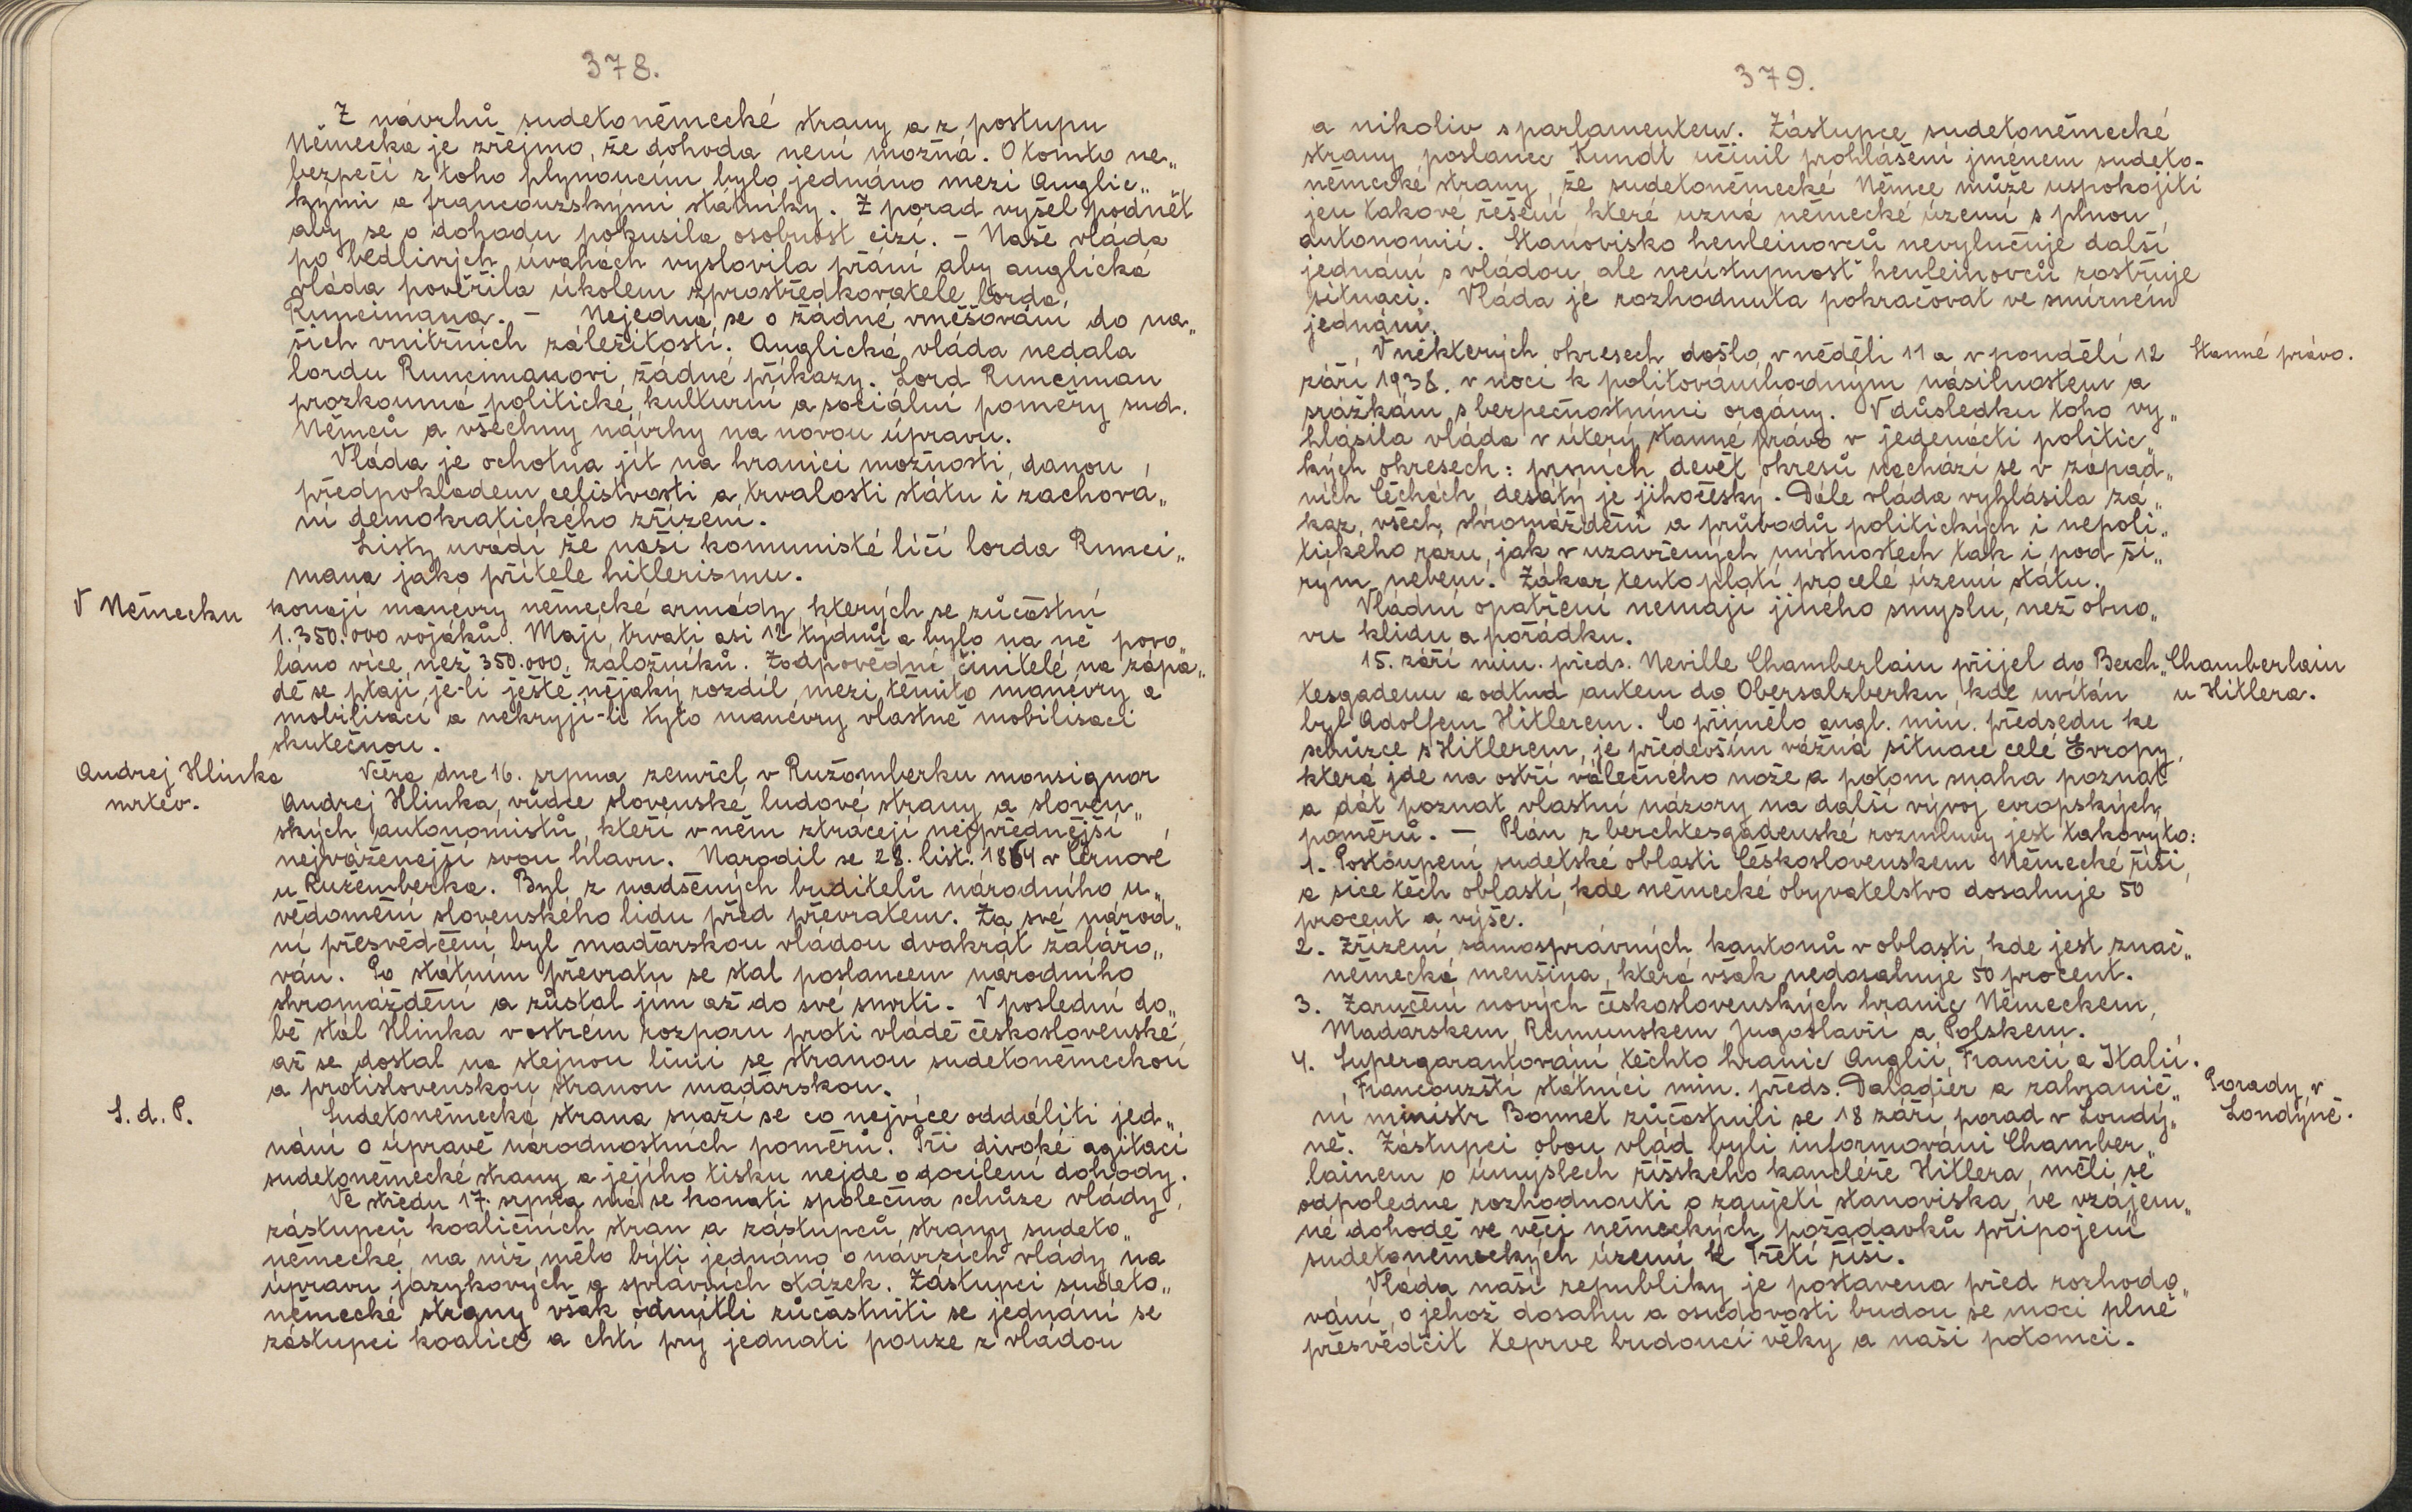 378.
Z návrhů sudetoněmecké strany a z postupu
Německa je zřejmo, že dohoda není možná. O tomto ne„
bezpečí z toho plynoucím bylo jednáno mezi Anglic„
kými a francouzskými státníky. Z porad vyšel podnět
aby se o dohodu pokusila osobnost cizí. – Naše vláda
po bedlivých úvahách vyslovila přání aby anglická
vláda pověřila úkolem zprostředkovatele lorda
Runcimana. – Nejedná se o žádné vměšování do na„
šich vnitřních záležitostí. Anglická vláda nedala
lordu Runcimanovi žádné příkazy. Lord Runciman
prozkoumá politické, kulturní a sociální poměry sud.
Němců a všechny návrhy na novou úpravu.
Vláda je ochotna jít na hranici možnosti, danou
předpokladem celistvosti a trvalosti státu i zachová„
ní demokratického zřízení.
Listy uvádí že naši komunisté líčí lorda Runci„
mana jako přítele hitlerismu.
V Německu
konají manévry německé armády, kterých se zůčastní
1.350.000 vojáků. Mají trvati asi 12 týdnů a bylo na ně povo„
láno více než 350.000 záložníků. Zodpovědní činitelé na zápa„
dě se ptají je-li ještě nějaký rozdíl mezi těmito manévry a
mobilisací a nekryjí-li tyto manévry vlastně mobilisaci
skutečnou.
Andrej Hlinka
mrtev.
Včera dne 16. srpna zemřel v Ružomberku monsignor
Andrej Hlinka, vůdce slovenské ludové strany a sloven„
ských autonomistů, kteří v něm ztrácejí nejpřednější,
nejváženější svou hlavu. Narodil se 28. list. 1864 v Černové
u Ružemberka. Byl z nadšených buditelů národního u„
vědomění slovenského lidu před převratem. Za své národ„
ní přesvědčení byl maďarskou vládou dvakrát žalářo„
ván. Po státním převratu se stal poslancem národního
shromáždění a zůstal jím až do své smrti. V poslední do„
bě stál Hlinka v ostrém rozporu proti vládě československé,
až se dostal na stejnou linii se stranou sudetoněmeckou
a protislovenskou stranou maďarskou.
S. d. P.
Sudetoněmecká strana snaží se co nejvíce oddáliti jed„
nání o úpravě národnostních poměrů. Při divoké agitaci
sudetoněmecké strany a jejího tisku nejde o docílení dohody.
Ve středu 17. srpna má se konati společná schůze vlády,
zástupců koaličních stran a zástupců strany sudeto„
německé, na níž mělo býti jednáno o návrzích vlády na
úpravu jazykových a správních otázek. Zástupci sudeto„
německé strany však odmítli zůčastniti se jednání se
zástupci koalice a chtí prý jednati pouze z vládou
379.
a nikoliv s parlamentem. Zástupce sudetoněmecké
strany poslanec Kundt učinil prohlášení jménem sudeto-
německé strany, že sudetoněmecké Němce může uspokojiti
jen takové řešení které uzná německé území s plnou
autonomií. Stanovisko henleinovců nevylučuje další
jednání s vládou, ale neústupnost henleinovců zostřuje
situaci. Vláda je rozhodnuta pokračovat ve smírném
jednání.
Stanné právo.
V některých okresech došlo v neděli 11 a v pondělí 12
září 1938. v noci k politováníhodným násilnostem a
srážkám s bezpečnostními orgány. V důsledku toho vy„
hlásila vláda v úterý stanné právo v jedenácti politic„
kých okresech: prvních devět okresů nachází se v západ„
ních Čechách, desátý je jihočeský. Dále vláda vyhlásila zá„
kaz všech shromáždění a průvodů politických i nepoli„
tického rázu, jak v uzavřených místnostech tak i pod ši„
rým nebem. Zákaz tento platí pro celé území státu.
Vládní opatření nemají jiného smyslu, než obno„
vu klidu a pořádku.
Chamberlain
u Hitlera.
15. září min. předs. Neville Chamberlain přijel do Berch„
tesgadenu a odtud autem do Obersalzberku, kde uvítán
byl Adolfem Hitlerem. Co přimělo angl. min. předsedu ke
schůzce s Hitlerem, je především vážná situace celé Evropy,
která jde na ostří válečného nože a potom snaha poznat
a dát poznat vlastní názory na další vývoj evropských
poměrů. – Plán z berchtesgadenské rozmluvy jest takovýto:
1. Postoupení sudetské oblasti Československem Německé říši,
a sice těch oblastí, kde německé obyvatelstvo dosahuje 50
procent a výše.
2. Zřízení samosprávných kantonů v oblasti, kde jest znač„
německá menšina, která však nedosahuje 50 procent.
3. Zaručení nových československých hranic Německem,
Maďarskem, Rumunskem, Jugoslavií a Polskem.
4. Supergarantování těchto hranic Anglií, Francií a Italií.
Porady v
Londýně.
Francouzští státníci min. předs. Daladier a zahranič„
ní ministr Bonnet zůčastnili se 18 září porad v Londý„
ně. Zástupci obou vlád byli informováni Chamber„
lainem o úmyslech říšského kancléře Hitlera, měli se
odpoledne rozhodnouti o zaujetí stanoviska, ve vzájem„
né dohodě ve věci německých požadavků připojení
sudetoněmeckých území k Třetí říši.
Vláda naší republiky je postavena před rozhodo„
vání, o jehož dosahu a osudovosti budou se moci plně
přesvědčit teprve budoucí věky a naši potomci.